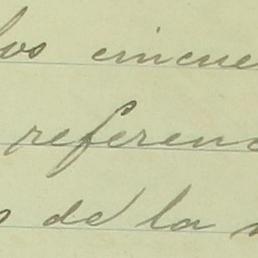 los cincue
referenc
s de la